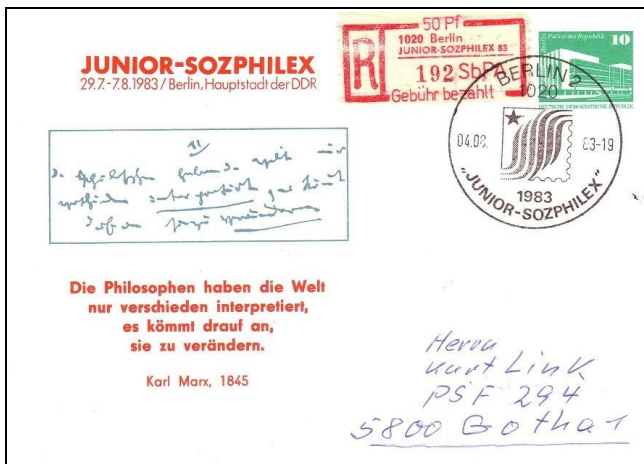 JUNIOR-SOZPHILEX
29.7.-7.8.1983/Berlin, Hauptstadt der DDR
50 Pf
1020 Berlin
JUNIOR-SOZPHILEX 83
R
192 SbPä
Gebühr bezahlt
Palast der Republik
10
DEUTSCHE DEMOKRATISCHE REPUBLIK
BERLIN 5
1020
04.08. 83-19
1983
„JUNIOR-SOZPHILEX"
11
Die Philosophen haben die Welt
nur verschieden interpretiert,
es kömmt drauf an,
sie zu verändern.
Karl Marx, 1845
Herrn
Kurt Link
PSF 294
5800 Gotha 1